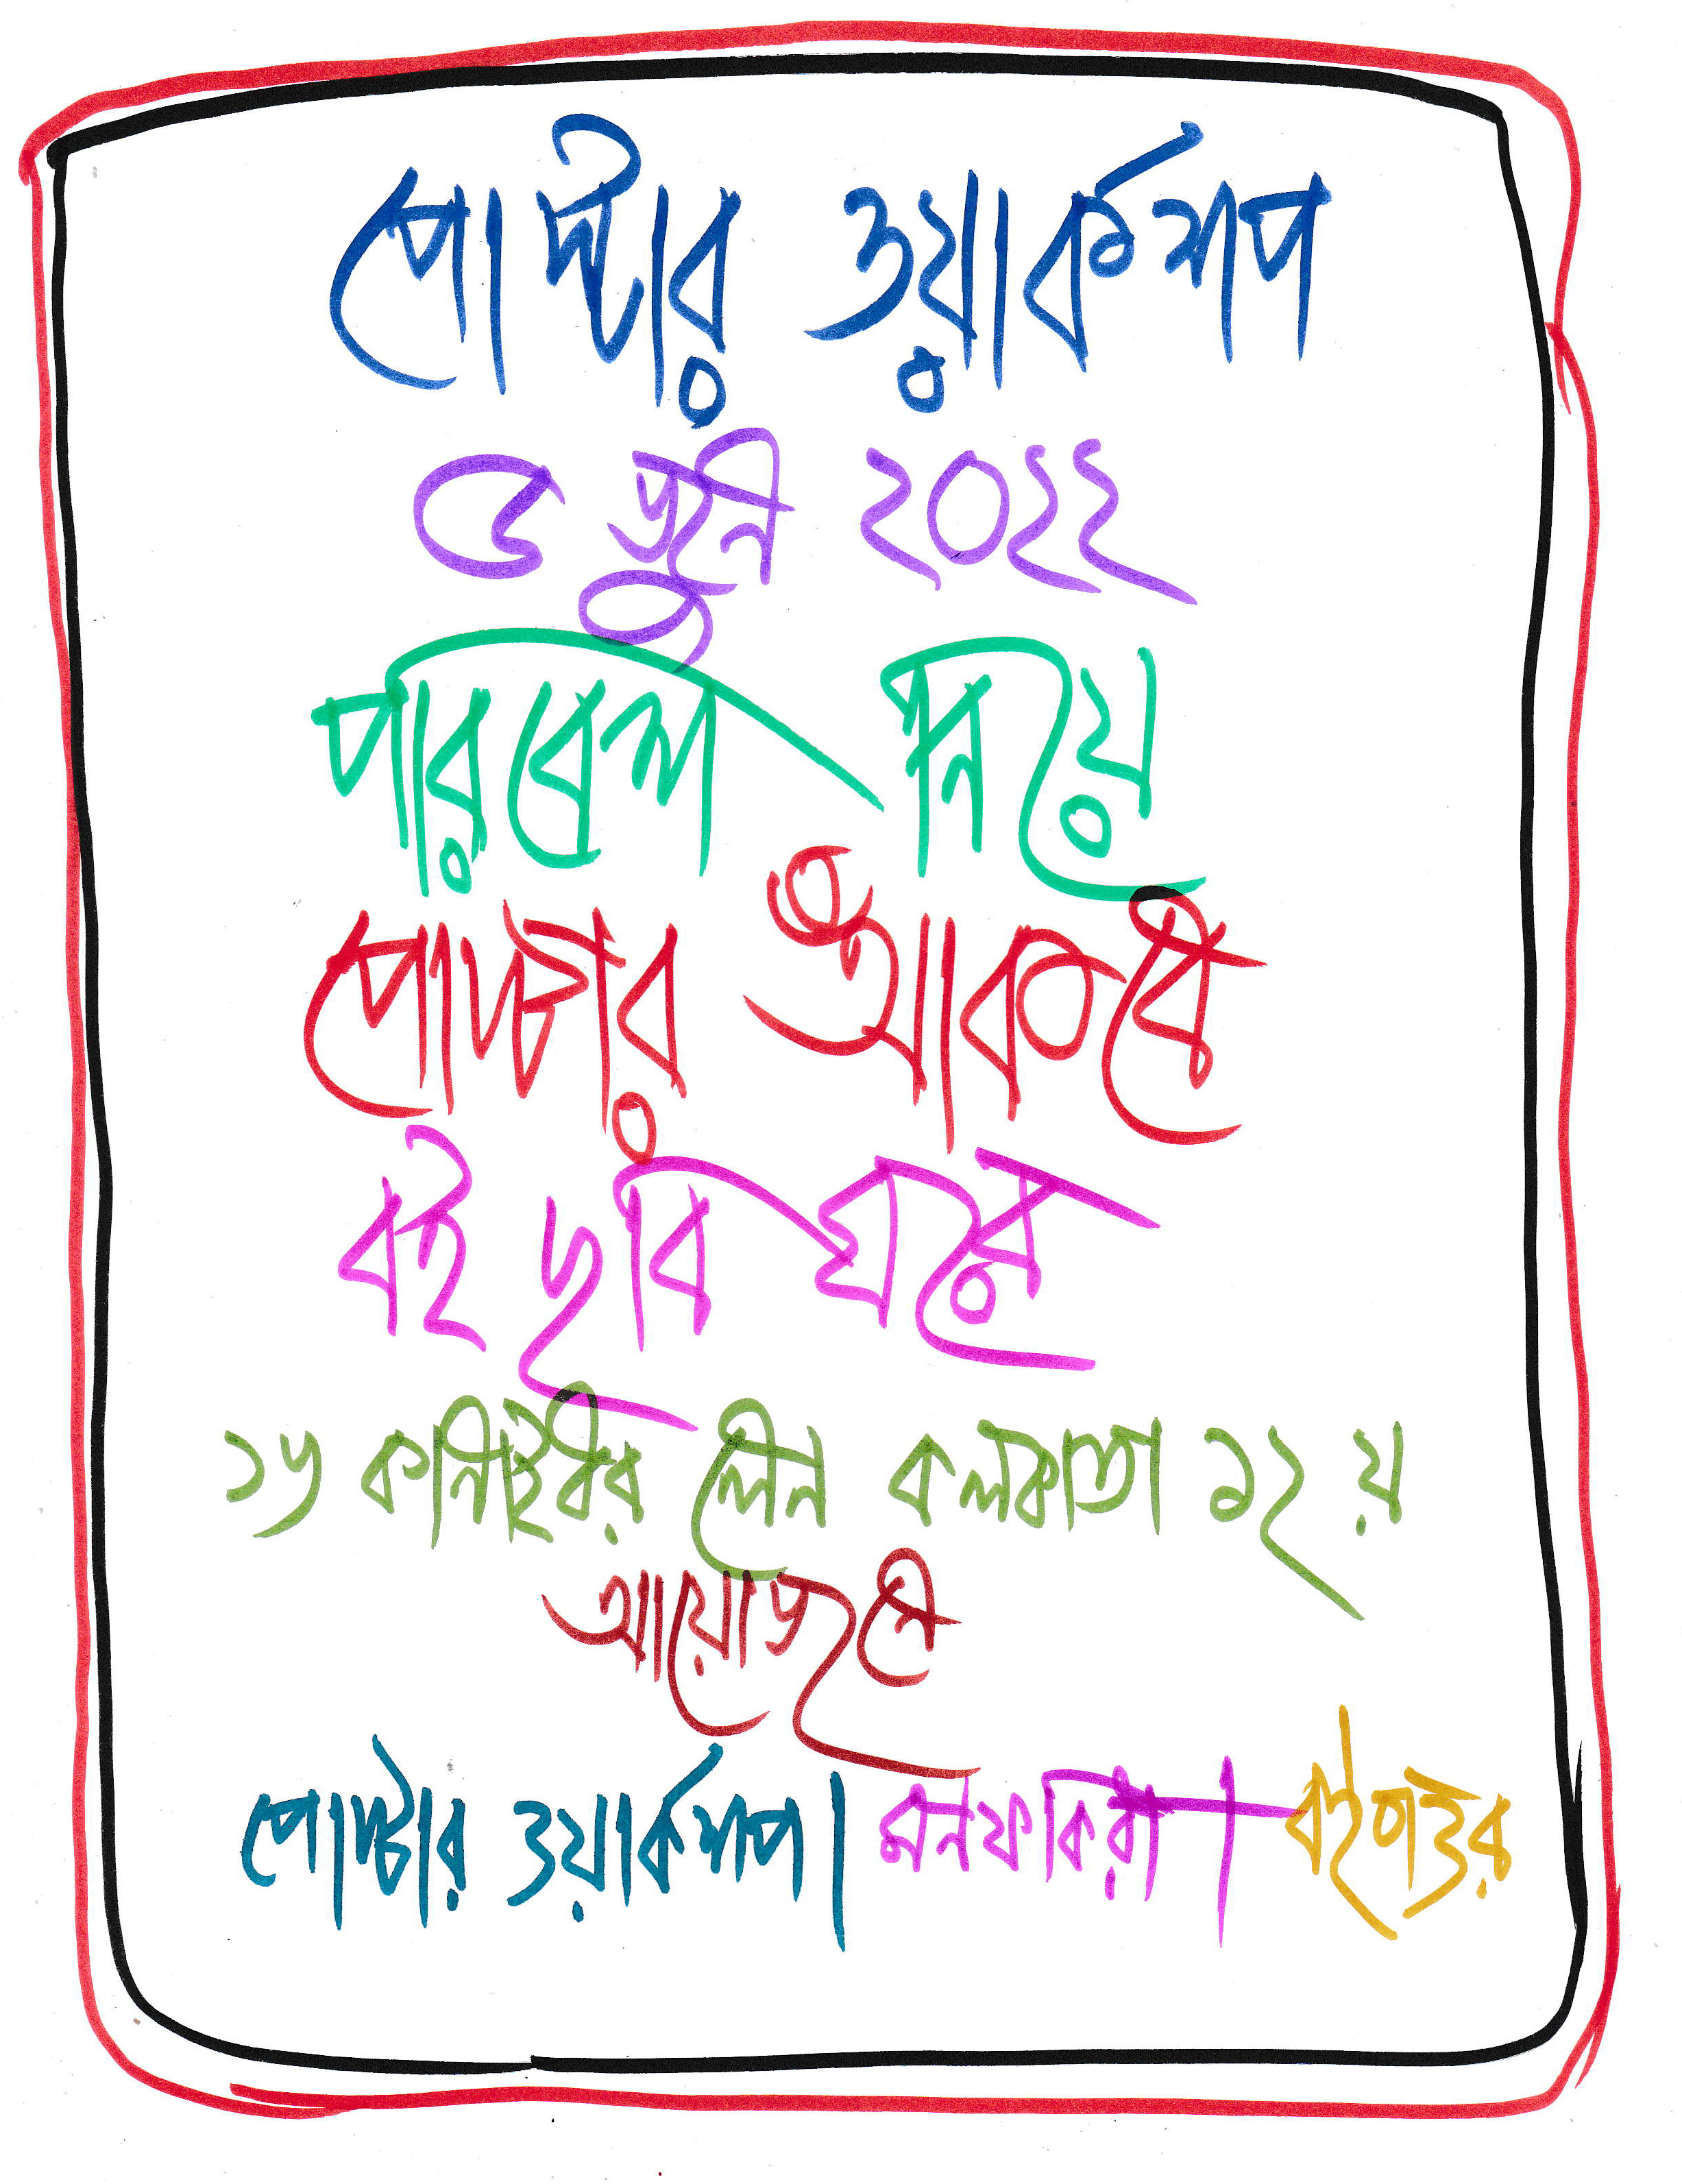 পোস্টার ওয়ার্কশপ
৫ জুন ২০২২
পরিবেশ নিয়ে
পোস্টার আঁকবে
বই ছবি ঘরে
১৬ কানাই ধর লেন কলকাতা ১২ য়
আয়োজনে
পোস্টার ওয়ার্কশপ। মনফকিরা। বইচাইর